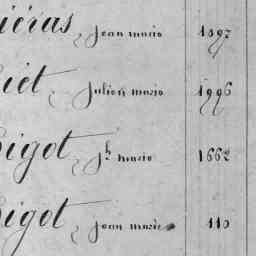 iéras, Jean marie 1897
iet, Julien marie 1996
igot, Jh marie 1662
igot, Jean marie 110